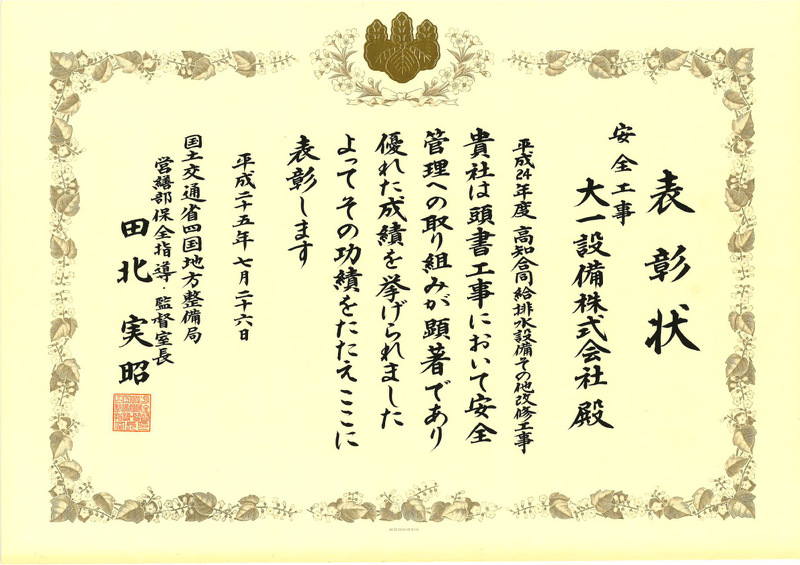 表彰状
安全工事
大一設備株式会社 殿
平成24年度 高知合同給排水設備その他改修工事
貴社は頭書工事において安全
管理への取り組みが顕著であり
優れた成績を挙げられました
よってその功績をたたえここに
表彰します
平成二十五年 七月二十六日
国土交通省四国地方整備局
営繕部保全指導・監督室長
田北 実昭